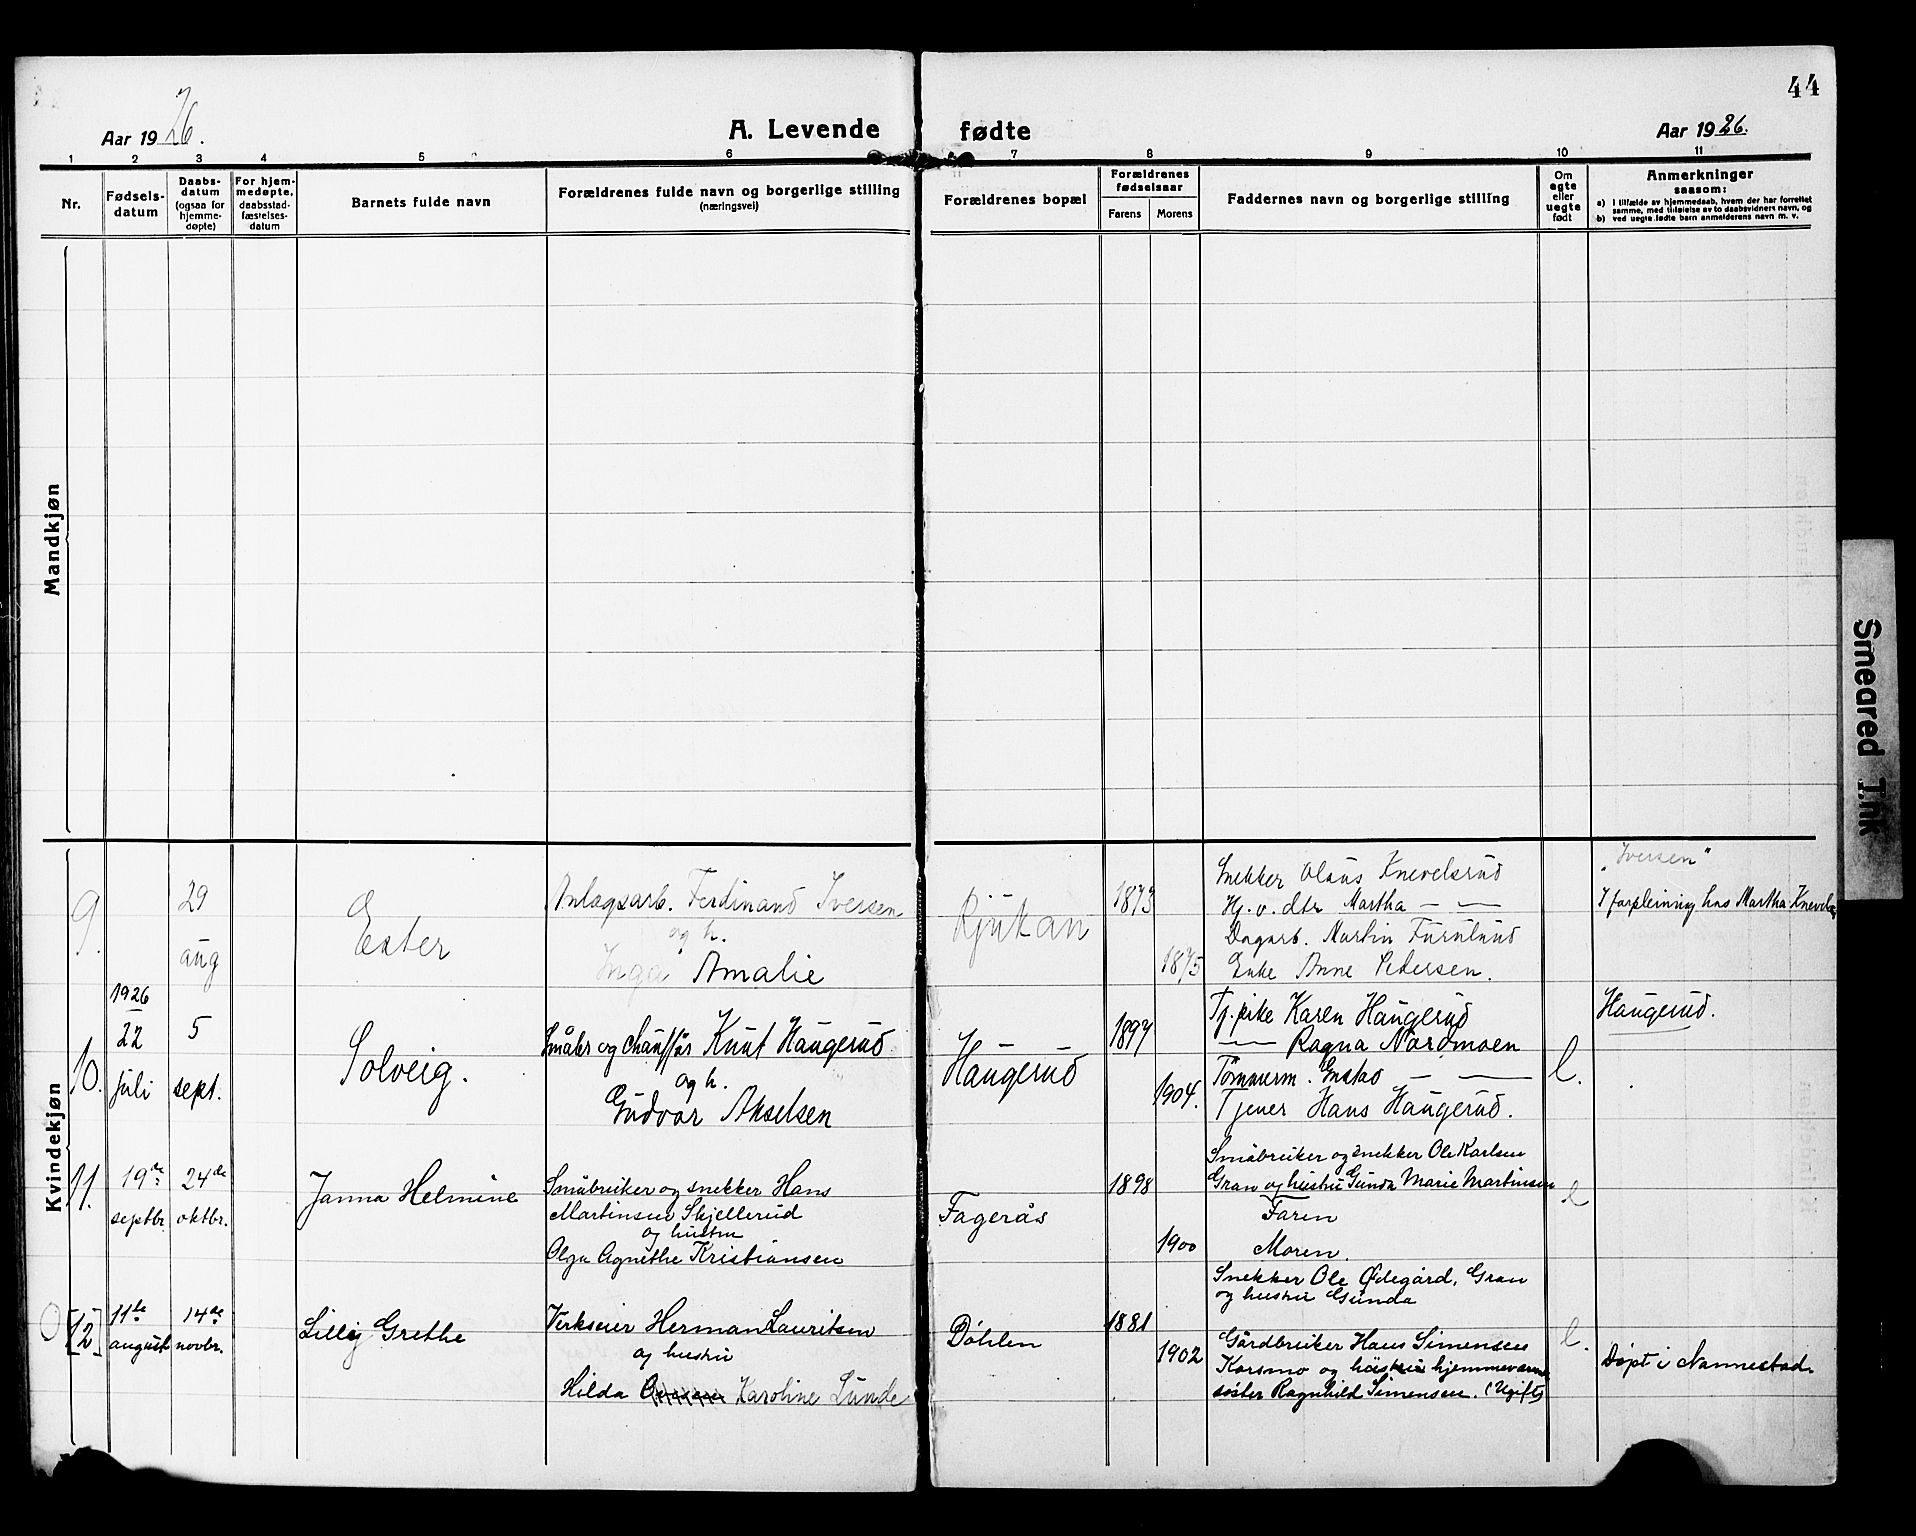 44
Aar 1926.
A. Levende fødte
Aar 1926.
1 2 3 4 5 6 7 8 9 10 11
Nr.
Fødsels-
datum
Daabs-
datum
(ogsaa for
hjemme-
døpte)
For hjem-
medøpte,
daabsstad-
fæstelses-
datum
Barnets fulde navn
Forældrenes fulde navn og borgerlige stilling
(næringsvei)
Forældrenes bopæl
Forældrenes
fødselsaar
Farens
Morens
Faddernes navn og borgerlige stilling
Om
egte
eller
uegte
født
Anmerkninger
saasom:
a) I tilfælde av hjemmedaab, hvem der har forrettet
samme, med tilføielse av to daabsvidners navn, og
b) ved uegte fødte børn anmelderens navn m. v.
Mandkjøn
Kvindekjøn
9.
29
aug
Ester
Anlægsarb. Ferdinand Iversen
og h.
Inga Amalie
Rjukan
1873
1875
Snekker Olaus Knevelsrud
Hj. v. dtr Martha — —
Dagarb. Martin Furulund
Enke Anne Pedersen.
"Iversen"
I forpleining hos Martha
10.
1926
22
juli
5
sept.
Solveig.
Småbr og chauffør Knut Haugerud
og h.
Gudvor Akselsen
Haugerud
1897
1904.
Tj. pike Karen Haugerud
— Ragna Nordmoen
Tømmerm. Gustav — —
Tjener Hans Haugerud.
e.
Haugerud.
11.
19de
septbr.
24de
oktbr.
Janna Helmine
Småbruker og snekker Hans
Martinsen Skjellerud
og hustru
Olga Agnethe Kristiansen
Fagerås
1898
1900
Småbruker og snekker Ole Karlsen
Gran og hustru Gunda Marie Martinsen
Faren
Moren.
e
Snekker Ole Ødegård, Gran
og hustru Gunda
[12]
11te
august
14de
novbr.
Lilly Grethe
Verkseier Herman Lauritsen
og hustru
Hilda Karoline Lunde
Döhlen
1881
1902
Gårdbruker Hans Simensen
Korsmo og hjemmeværende
søster Ragnhild Simensen. (Ugift)
e.
Døpt i Nannestad
Smeared Ink